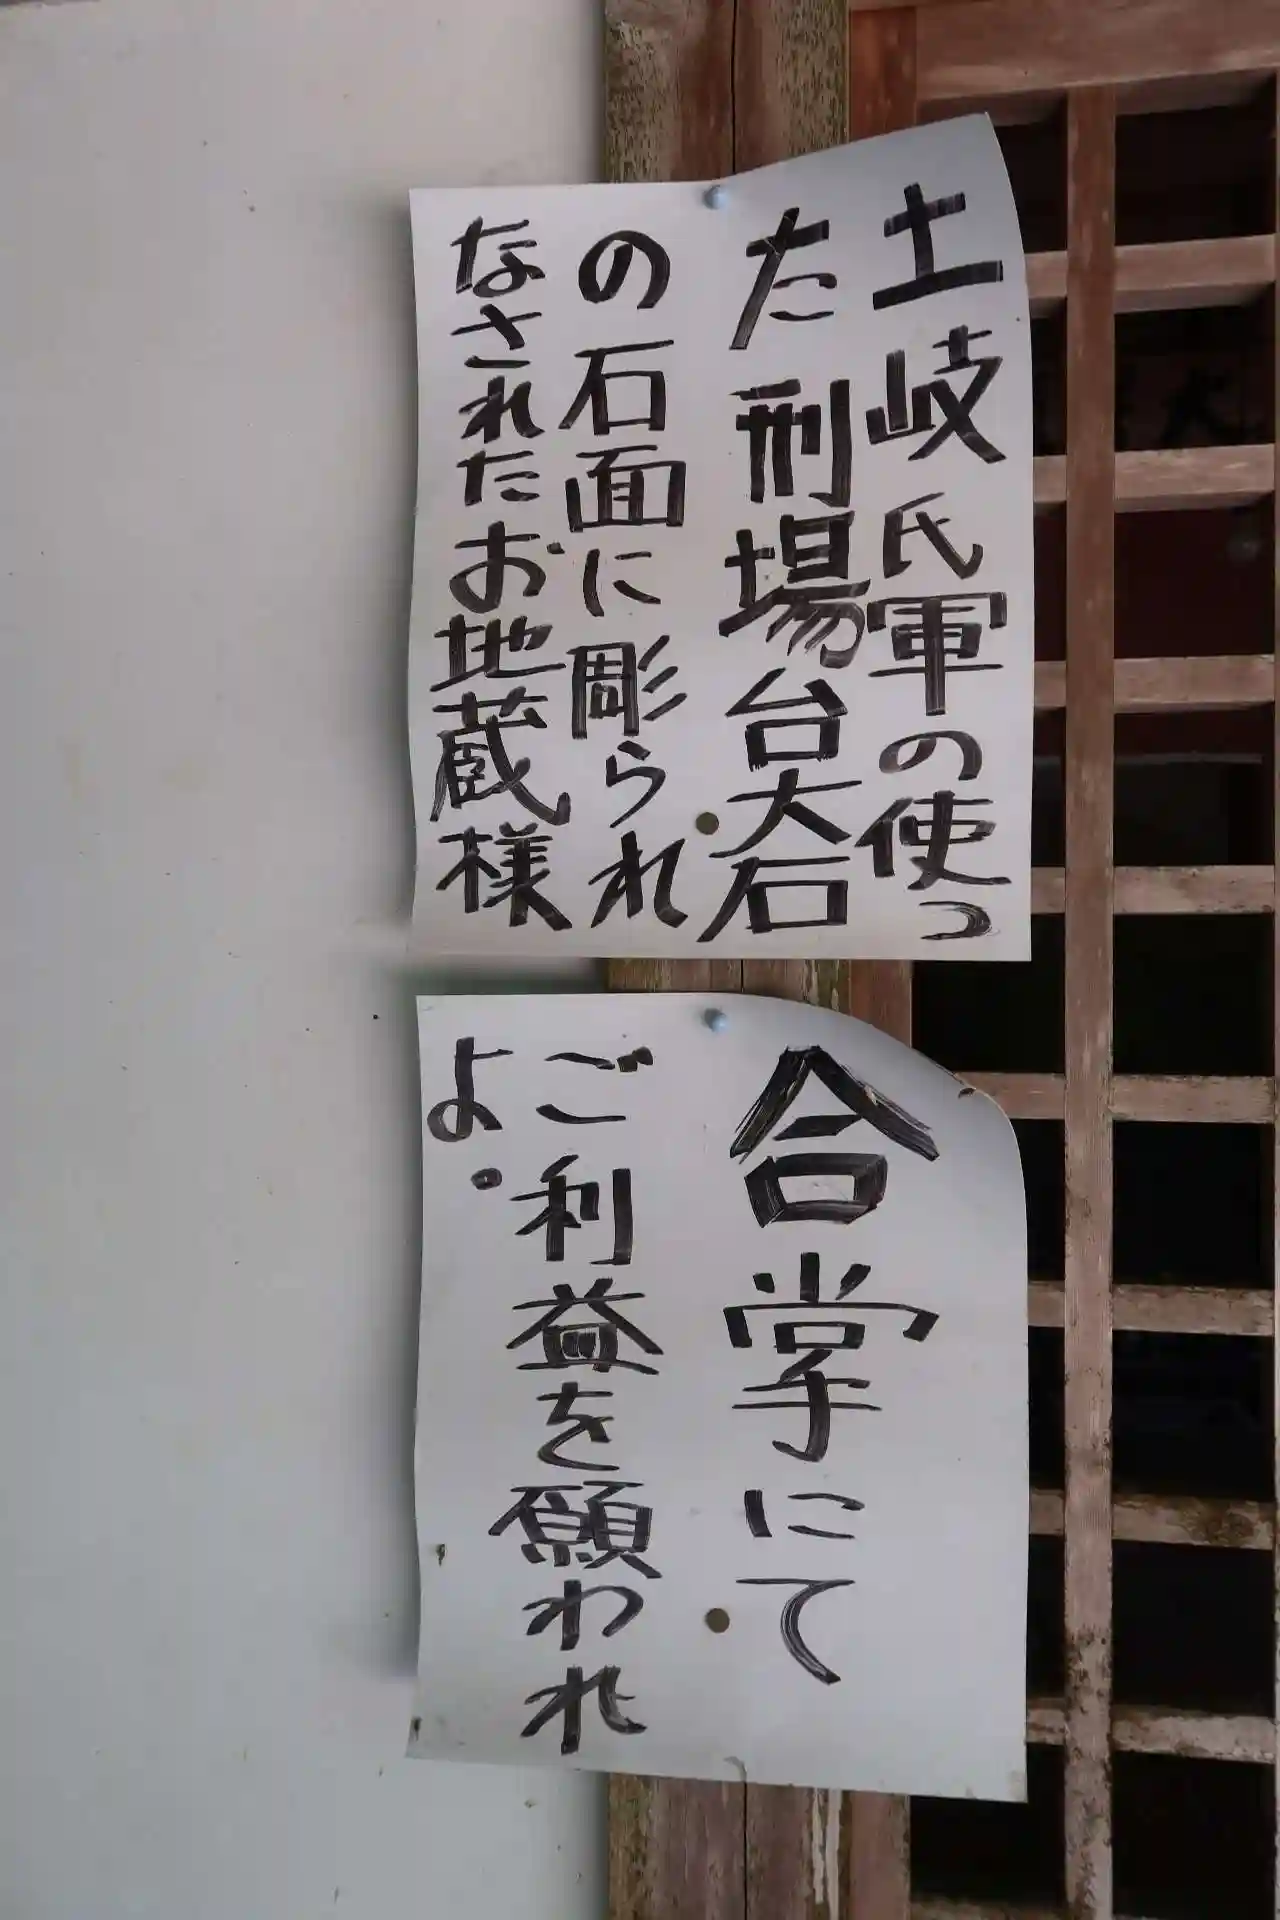 土岐氏軍の使っ
た刑場台大石
の石面に彫られ
なされたお地蔵様
合掌にて
ご利益を願われ
よ。